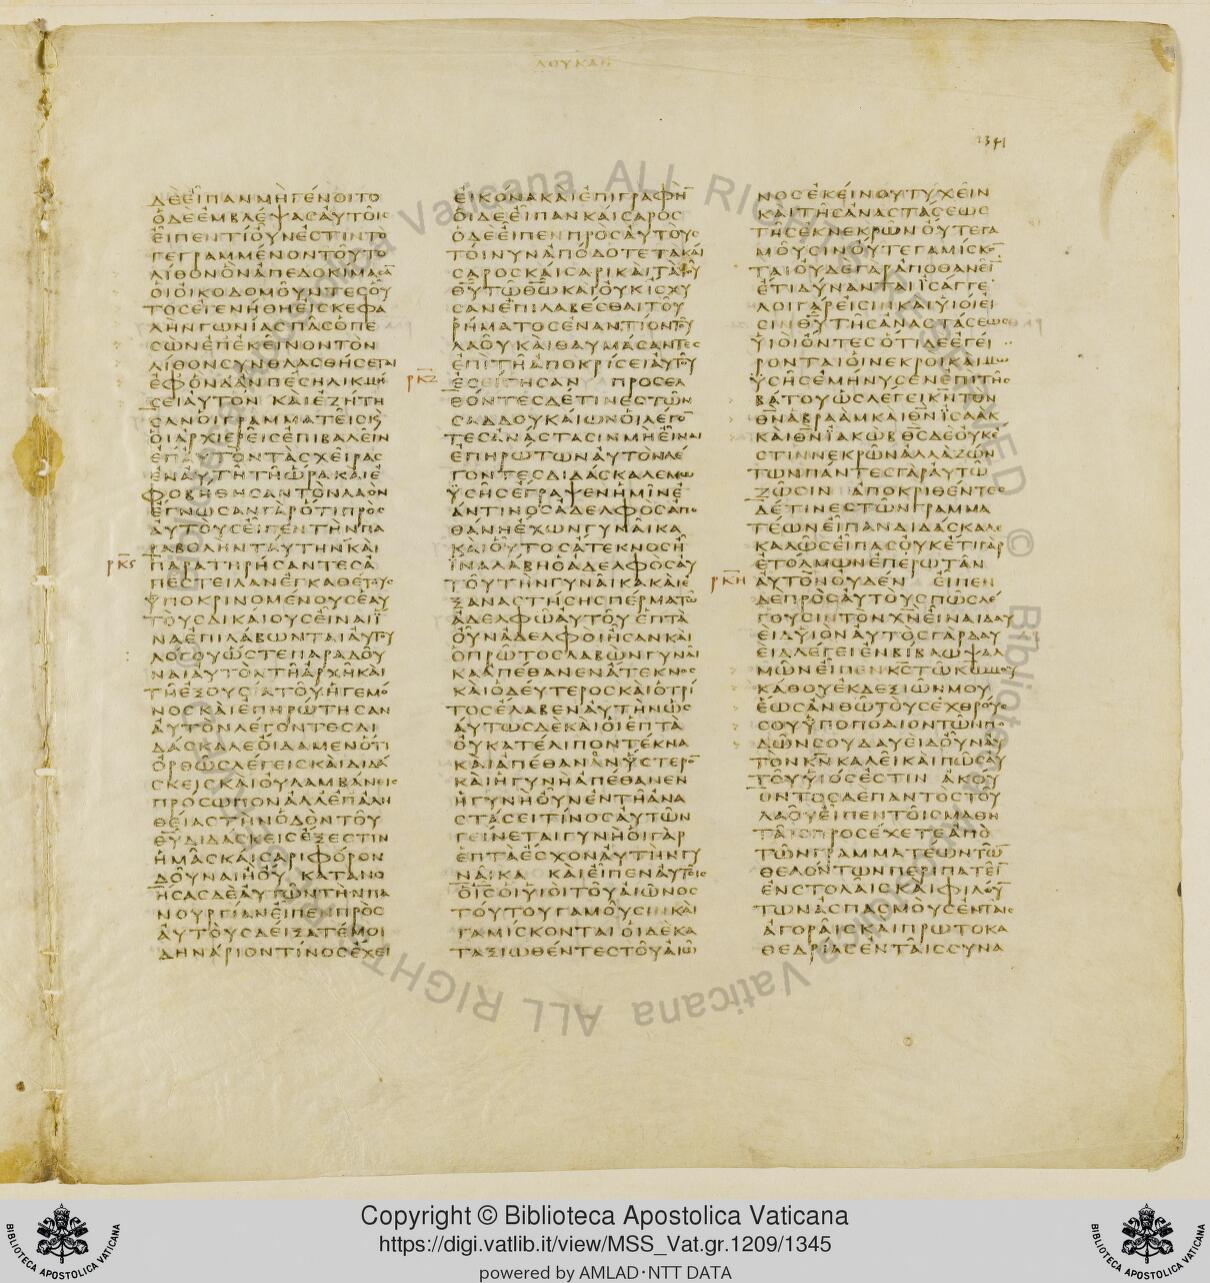 ΛΟΥΚΑΝ
1341
ΔΕ ΕΙΠΑΝ ΜΗ ΓΕΝΟΙΤΟ
Ο ΔΕ ΕΜΒΛΕΨΑΣ ΑΥΤΟΙΣ
ΕΙΠΕΝ ΤΙ ΟΥΝ ΕΣΤΙΝ ΤΟ
ΓΕΓΡΑΜΜΕΝΟΝ ΤΟΥΤΟ
ΛΙΘΟΝ ΟΝ ΑΠΕΔΟΚΙΜΑΣΑ̅
ΟΙ ΟΙΚΟΔΟΜΟΥΝΤΕΣ ΟΥ
ΤΟΣ ΕΓΕΝΗΘΗ ΕΙΣ ΚΕΦΑ
ΛΗΝ ΓΩΝΙΑΣ ΠΑΣ Ο ΠΕ
ΣΩΝ ΕΠ ΕΚΕΙΝΟΝ ΤΟΝ
ΛΙΘΟΝ ΣΥΝΘΛΑΣΘΗΣΕΤΑΙ
ΕΦ ΟΝ Δ ΑΝ ΠΕΣΗ ΛΙΚΜΗ
ΣΕΙ ΑΥΤΟΝ ΚΑΙ ΕΖΗΤΗ
ΣΑΝ ΟΙ ΓΡΑΜΜΑΤΕΙΣ Κ
ΟΙ ΑΡΧΙΕΡΕΙΣ ΕΠΙΒΑΛΕΙΝ
ΕΠ ΑΥΤΟΝ ΤΑΣ ΧΕΙΡΑΣ
ΕΝ ΑΥΤΗ ΤΗ ΩΡΑ ΚΑΙ Ε
ΦΟΒΗΘΗΣΑΝ ΤΟΝ ΛΑΟΝ
ΕΓΝΩΣΑΝ ΓΑΡ ΟΤΙ ΠΡΟΣ
ΑΥΤΟΥΣ ΕΙΠΕΝ ΤΗΝ ΠΑ
ΡΑΒΟΛΗΝ ΤΑΥΤΗΝ ΚΑΙ
ρκς ΠΑΡΑΤΗΡΗΣΑΝΤΕΣ Α
ΠΕΣΤΕΙΛΑΝ ΕΓΚΑΘΕΤΟΥΣ
ΥΠΟΚΡΙΝΟΜΕΝΟΥΣ ΕΑΥ
ΤΟΥΣ ΔΙΚΑΙΟΥΣ ΕΙΝΑΙ Ϊ
ΝΑ ΕΠΙΛΑΒΩΝΤΑΙ ΑΥΤΟΥ
ΛΟΓΟΥ ΩΣΤΕ ΠΑΡΑΔΟΥ
ΝΑΙ ΑΥΤΟΝ ΤΗ ΑΡΧΗ ΚΑΙ
ΤΗ ΕΞΟΥΣΙΑ ΤΟΥ ΗΓΕΜΟ
ΝΟΣ ΚΑΙ ΕΠΗΡΩΤΗΣΑΝ
ΑΥΤΟΝ ΛΕΓΟΝΤΕΣ ΔΙ
ΔΑΣΚΑΛΕ ΟΙΔΑΜΕΝ ΟΤΙ
ΟΡΘΩΣ ΛΕΓΕΙΣ ΚΑΙ ΔΙΔΑ
ΣΚΕΙΣ ΚΑΙ ΟΥ ΛΑΜΒΑΝΕΙΣ
ΠΡΟΣΩΠΟΝ ΑΛΛ ΕΠ ΑΛΗ
ΘΕΙΑΣ ΤΗΝ ΟΔΟΝ ΤΟΥ
Θ̅Υ̅ ΔΙΔΑΣΚΕΙΣ ΕΞΕΣΤΙΝ
ΗΜΑΣ ΚΑΙΣΑΡΙ ΦΟΡΟΝ
ΔΟΥΝΑΙ Η ΟΥ ΚΑΤΑΝΟ
ΗΣΑΣ ΔΕ ΑΥΤΩΝ ΤΗΝ ΠΑ
ΝΟΥΡΓΙΑΝ ΕΙΠΕΝ ΠΡΟΣ
ΑΥΤΟΥΣ ΔΕΙΞΑΤΕ ΜΟΙ
ΔΗΝΑΡΙΟΝ ΤΙΝΟΣ ΕΧΕΙ
ΕΙΚΟΝΑ ΚΑΙ ΕΠΙΓΡΑΦΗ̅
ΟΙ ΔΕ ΕΙΠΑΝ ΚΑΙΣΑΡΟΣ
Ο ΔΕ ΕΙΠΕΝ ΠΡΟΣ ΑΥΤΟΥΣ
ΤΟΙΝΥΝ ΑΠΟΔΟΤΕ ΤΑ ΚΑΙ
ΣΑΡΟΣ ΚΑΙΣΑΡΙ ΚΑΙ ΤΑ ΤΟΥ
Θ̅Υ̅ ΤΩ Θ̅Ω̅ ΚΑΙ ΟΥΚ ΙΣΧΥ
ΣΑΝ ΕΠΙΛΑΒΕΣΘΑΙ ΤΟΥ
ΡΗΜΑΤΟΣ ΕΝΑΝΤΙΟΝ ΤΟΥ
ΛΑΟΥ ΚΑΙ ΘΑΥΜΑΣΑΝΤΕΣ
ΕΠΙ ΤΗ ΑΠΟΚΡΙΣΕΙ ΑΥΤΟΥ
ρκζ ΕΣΕΙΓΗΣΑΝ ΠΡΟΣΕΛ
ΘΟΝΤΕΣ ΔΕ ΤΙΝΕΣ ΤΩΝ
ΣΑΔΔΟΥΚΑΙΩΝ ΟΙ ΛΕΓΟ̅
ΤΕΣ ΑΝΑΣΤΑΣΙΝ ΜΗ ΕΙΝΑΙ
ΕΠΗΡΩΤΩΝ ΑΥΤΟΝ ΛΕ
ΓΟΝΤΕΣ ΔΙΔΑΣΚΑΛΕ ΜΩ
ΥΣΗΣ ΕΓΡΑΨΕΝ ΗΜΙΝ Ε
ΑΝ ΤΙΝΟΣ ΑΔΕΛΦΟΣ ΑΠΟ
ΘΑΝΗ ΕΧΩΝ ΓΥΝΑΙΚΑ
ΚΑΙ ΟΥΤΟΣ ΑΤΕΚΝΟΣ Η
ΙΝΑ ΛΑΒΗ Ο ΑΔΕΛΦΟΣ ΑΥ
ΤΟΥ ΤΗΝ ΓΥΝΑΙΚΑ ΚΑΙ Ε
ΞΑΝΑΣΤΗΣΗ ΣΠΕΡΜΑ ΤΩ
ΑΔΕΛΦΩ ΑΥΤΟΥ ΕΠΤΑ
ΟΥΝ ΑΔΕΛΦΟΙ ΗΣΑΝ ΚΑΙ
Ο ΠΡΩΤΟΣ ΛΑΒΩΝ ΓΥΝΑΙ
ΚΑ ΑΠΕΘΑΝΕΝ ΑΤΕΚΝΟΣ
ΚΑΙ Ο ΔΕΥΤΕΡΟΣ ΚΑΙ Ο ΤΡΙ
ΤΟΣ ΕΛΑΒΕΝ ΑΥΤΗΝ ΩΣ
ΑΥΤΩΣ ΔΕ ΚΑΙ ΟΙ ΕΠΤΑ
ΟΥ ΚΑΤΕΛΙΠΟΝ ΤΕΚΝΑ
ΚΑΙ ΑΠΕΘΑΝΑΝ ΥΣΤΕΡΟ̅
ΚΑΙ Η ΓΥΝΗ ΑΠΕΘΑΝΕΝ
Η ΓΥΝΗ ΟΥΝ ΕΝ ΤΗ ΑΝΑ
ΣΤΑΣΕΙ ΤΙΝΟΣ ΑΥΤΩΝ
ΓΕΙΝΕΤΑΙ ΓΥΝΗ ΟΙ ΓΑΡ
ΕΠΤΑ ΕΣΧΟΝ ΑΥΤΗΝ ΓΥ
ΝΑΙΚΑ ΚΑΙ ΕΙΠΕΝ ΑΥΤΟΙΣ
Ο Ι̅Σ̅ ΟΙ ΥΙΟΙ ΤΟΥ ΑΙΩΝΟΣ
ΤΟΥΤΟΥ ΓΑΜΟΥΣΙΝ ΚΑΙ
ΓΑΜΙΣΚΟΝΤΑΙ ΟΙ ΔΕ ΚΑ
ΤΑΞΙΩΘΕΝΤΕΣ ΤΟΥ ΑΙΩ
ΝΟΣ ΕΚΕΙΝΟΥ ΤΥΧΕΙΝ
ΚΑΙ ΤΗΣ ΑΝΑΣΤΑΣΕΩΣ
ΤΗΣ ΕΚ ΝΕΚΡΩΝ ΟΥΤΕ ΓΑ
ΜΟΥΣΙΝ ΟΥΤΕ ΓΑΜΙΣΚΟ̅
ΤΑΙ ΟΥΔΕ ΓΑΡ ΑΠΟΘΑΝΕΙ̅
ΕΤΙ ΔΥΝΑΝΤΑΙ ΙΣΑΓΓΕ
ΛΟΙ ΓΑΡ ΕΙΣΙΝ ΚΑΙ ΥΙΟΙ ΕΙ
ΣΙΝ Θ̅Υ̅ ΤΗΣ ΑΝΑΣΤΑΣΕΩΣ
ΥΙΟΙ ΟΝΤΕΣ ΟΤΙ ΔΕ ΕΓΕΙ
ΡΟΝΤΑΙ ΟΙ ΝΕΚΡΟΙ ΚΑΙ ΜΩ
ΥΣΗΣ ΕΜΗΝΥΣΕΝ ΕΠΙ ΤΗΣ
ΒΑΤΟΥ ΩΣ ΛΕΓΕΙ Κ̅Ν̅ ΤΟΝ
Θ̅Ν̅ ΑΒΡΑΑΜ ΚΑΙ Θ̅Ν̅ ΙΣΑΑΚ
ΚΑΙ Θ̅Ν̅ ΙΑΚΩΒ Θ̅Σ̅ ΔΕ ΟΥΚ Ε
ΣΤΙΝ ΝΕΚΡΩΝ ΑΛΛΑ ΖΩΝ
ΤΩΝ ΠΑΝΤΕΣ ΓΑΡ ΑΥΤΩ
ΖΩΣΙΝ ΑΠΟΚΡΙΘΕΝΤΕΣ
ΔΕ ΤΙΝΕΣ ΤΩΝ ΓΡΑΜΜΑ
ΤΕΩΝ ΕΙΠΑΝ ΔΙΔΑΣΚΑΛΕ
ΚΑΛΩΣ ΕΙΠΑΣ ΟΥΚΕΤΙ ΓΑΡ
ΕΤΟΛΜΩΝ ΕΠΕΡΩΤΑΝ
ρκη ΑΥΤΟΝ ΟΥΔΕΝ ΕΙΠΕΝ
ΔΕ ΠΡΟΣ ΑΥΤΟΥΣ ΠΩΣ ΛΕ
ΓΟΥΣΙΝ ΤΟΝ Χ̅Ν̅ ΕΙΝΑΙ ΔΑΥ
ΕΙΔ ΥΙΟΝ ΑΥΤΟΣ ΓΑΡ ΔΑΥ
ΕΙΔ ΛΕΓΕΙ ΕΝ ΒΙΒΛΩ ΨΑΛ
ΜΩΝ ΕΙΠΕΝ Κ̅Σ̅ ΤΩ Κ̅Ω̅ ΜΟΥ
ΚΑΘΟΥ ΕΚ ΔΕΞΙΩΝ ΜΟΥ
ΕΩΣ ΑΝ ΘΩ ΤΟΥΣ ΕΧΘΡΟΥΣ
ΣΟΥ ΥΠΟΠΟΔΙΟΝ ΤΩΝ ΠΟ
ΔΩΝ ΣΟΥ ΔΑΥΕΙΔ ΟΥΝ ΑΥ
ΤΟΝ Κ̅Ν̅ ΚΑΛΕΙ ΚΑΙ ΠΩΣ ΑΥ
ΤΟΥ ΥΙΟΣ ΕΣΤΙΝ ΑΚΟΥ
ΟΝΤΟΣ ΔΕ ΠΑΝΤΟΣ ΤΟΥ
ΛΑΟΥ ΕΙΠΕΝ ΤΟΙΣ ΜΑΘΗ
ΤΑΙΣ ΠΡΟΣΕΧΕΤΕ ΑΠΟ
ΤΩΝ ΓΡΑΜΜΑΤΕΩΝ ΤΩ̅
ΘΕΛΟΝΤΩΝ ΠΕΡΙΠΑΤΕΙ̅
ΕΝ ΣΤΟΛΑΙΣ ΚΑΙ ΦΙΛΟΥ̅
ΤΩΝ ΑΣΠΑΣΜΟΥΣ ΕΝ ΤΑΙΣ
ΑΓΟΡΑΙΣ ΚΑΙ ΠΡΩΤΟΚΑ
ΘΕΔΡΙΑΣ ΕΝ ΤΑΙΣ ΣΥΝΑ
Copyright © Biblioteca Apostolica Vaticana
https://digi.vatlib.it/view/MSS_Vat.gr.1209/1345
powered by AMLAD·NTT DATA
BIBLIOTECA APOSTOLICA VATICANA
BIBLIOTECA APOSTOLICA VATICANA